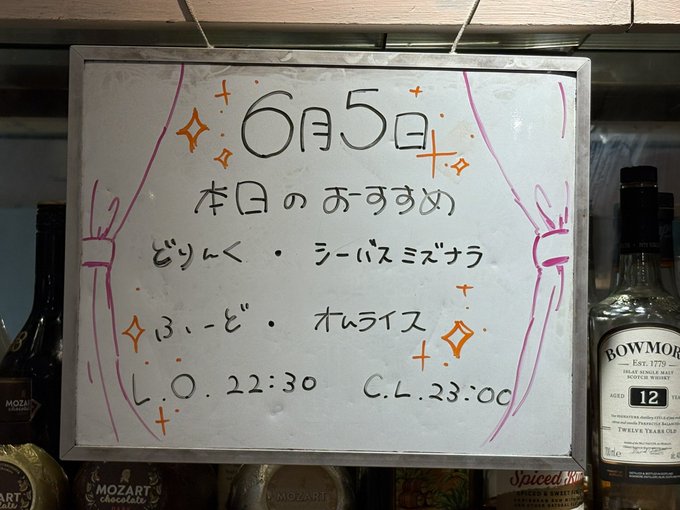 6月5日
本日のおーすすめ
どりんく・シーバスミズナラ
ふーど・オムライス
L.O. 22:30 C.L.23:00
BOWMORE
EST. 1779
ISLAY SINGLE MALT
SCOTCH WHISKY
AGED 12 YEA
TWELVE YEARS OLD
MOZART
chocolate
Spiced